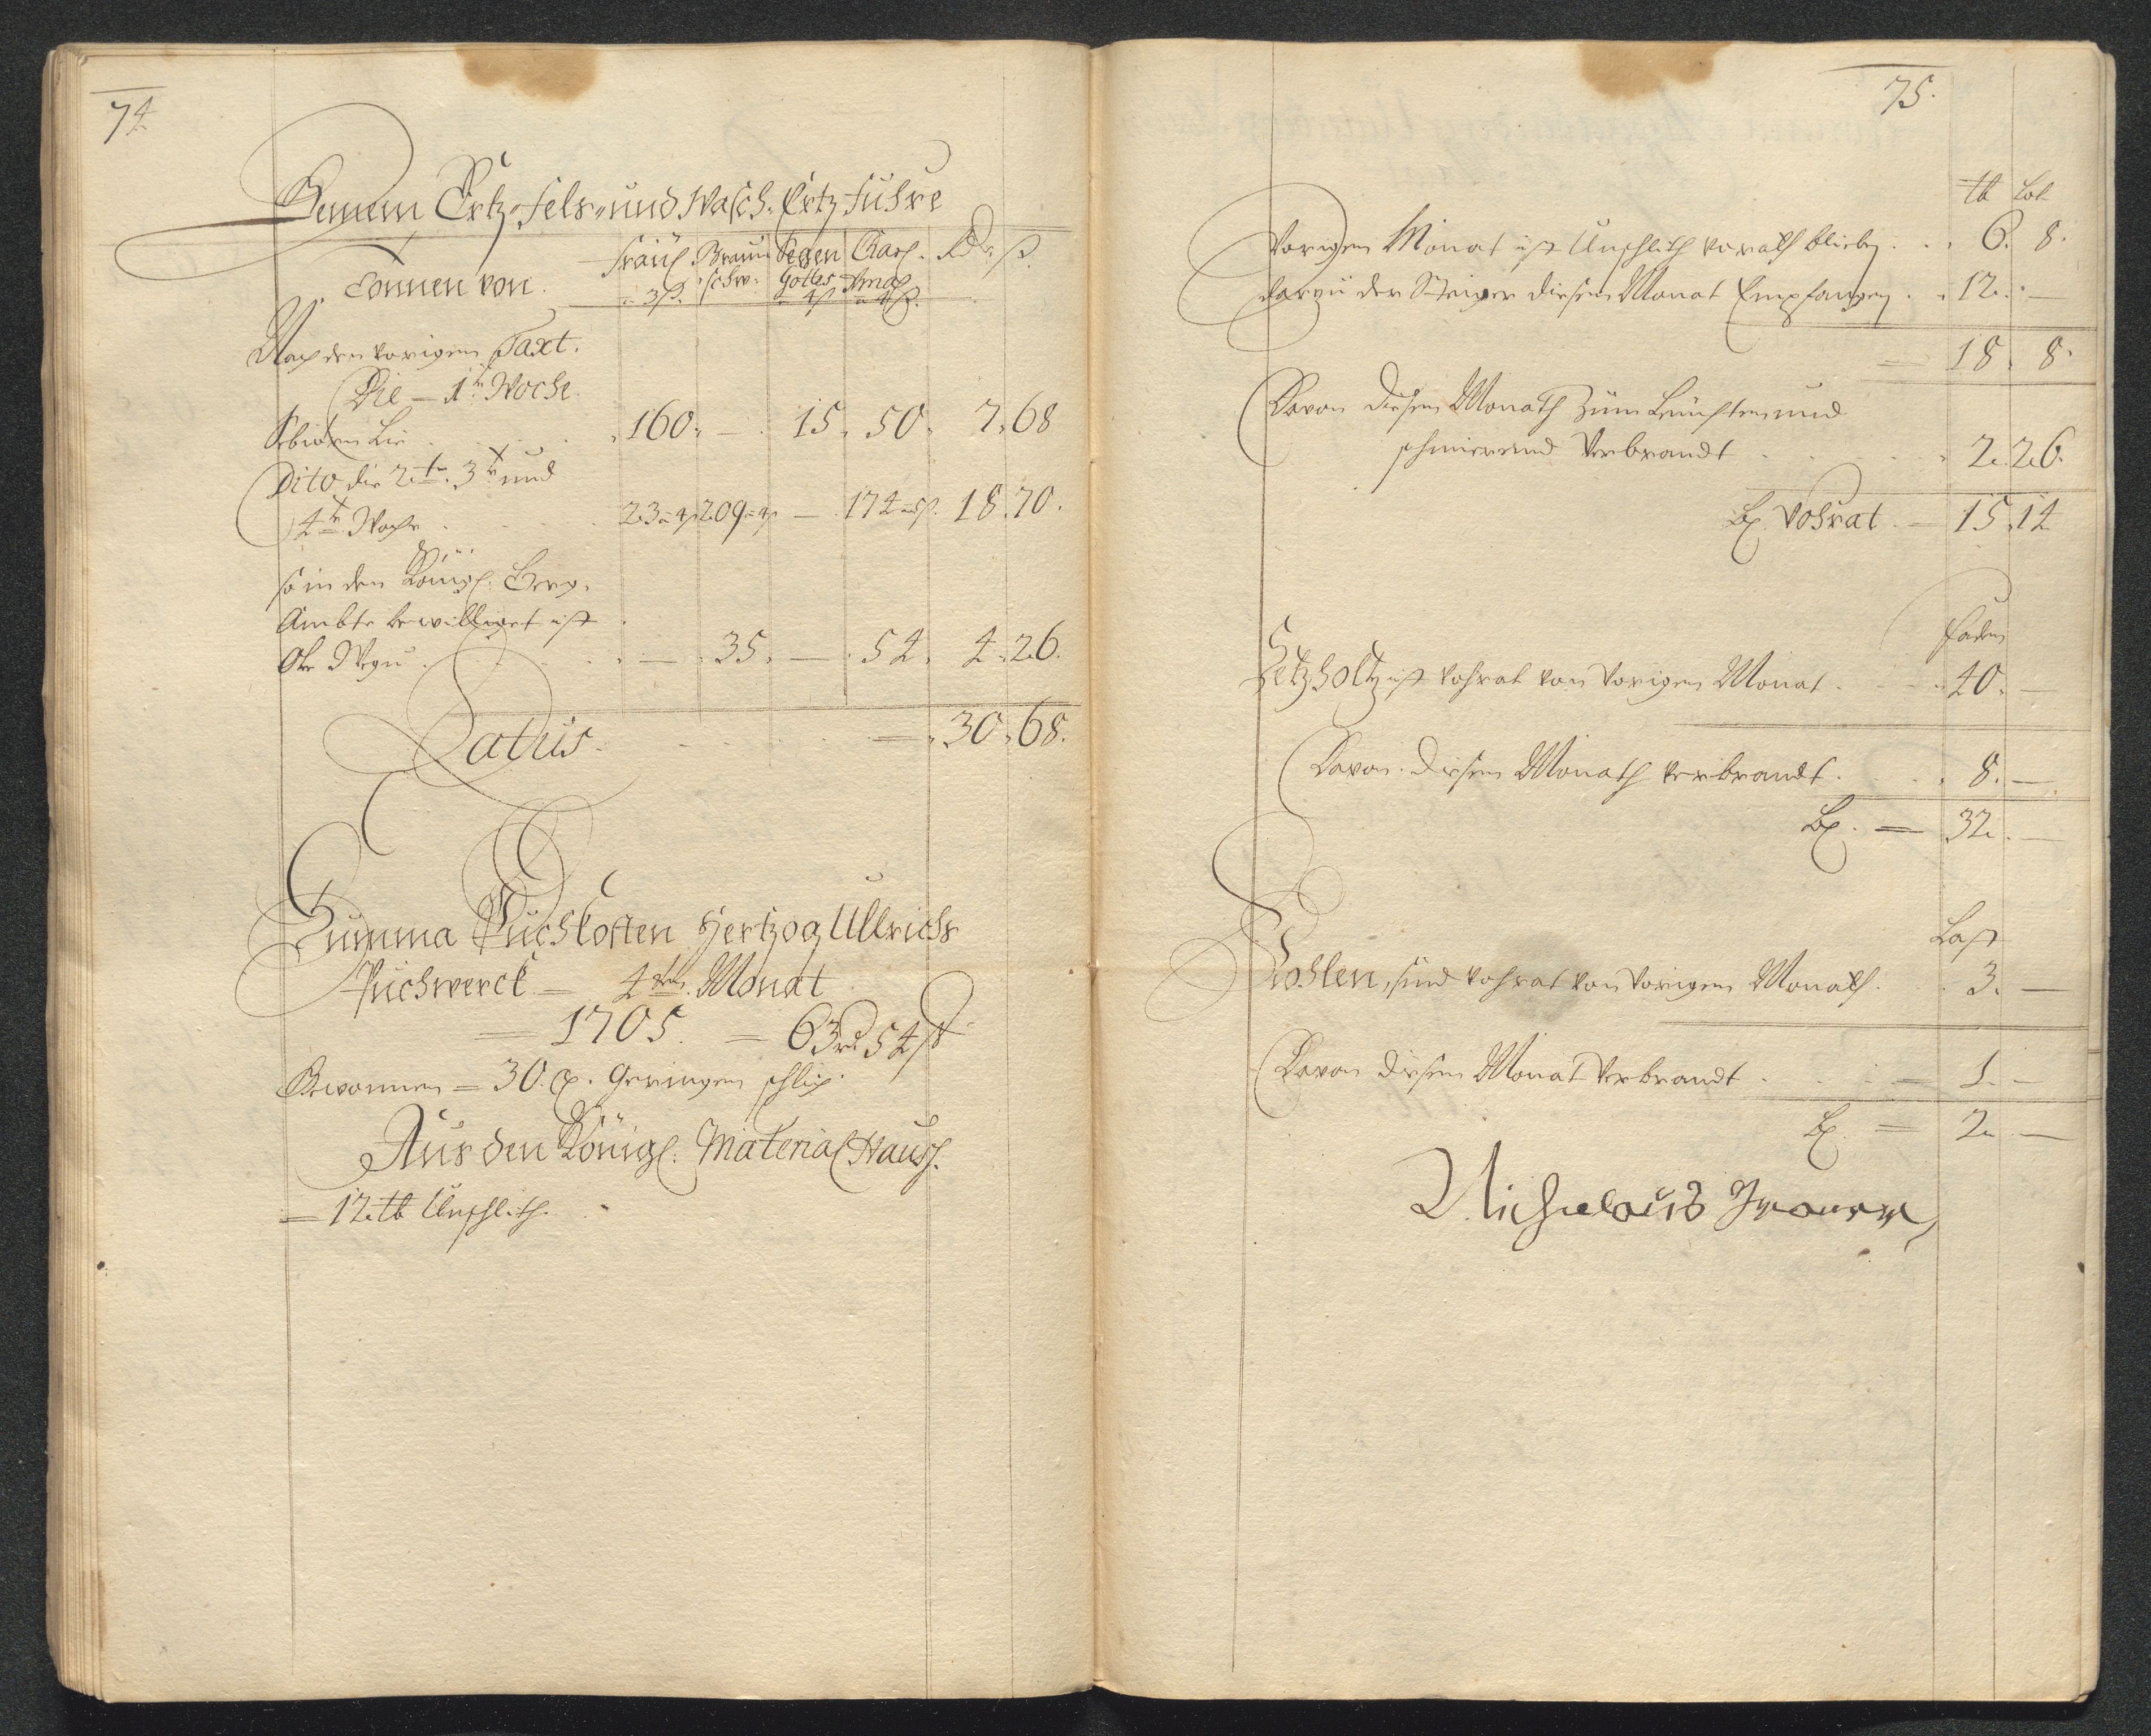 74.
Gemein Ertz, fels, und Wasch, Ertz fuhre
Tonnen von. Fräul. Braun Segen Carl. Rdr. ß.
schw: Gottes Arnol
a 3 ß. a 4 ß a 4 ß.
Nach den vorigen Taxt.
Die 1te Woche
160. — 15. 50. 7. 68
Dito die 2te. 3te und
4te Woche . . . 23 a 4 ß 209 a 4 ß — 174 a 5 ß. 18. 70.
so in den Königl. Berg,
Ambte bewilliget ist
— 35. — 54. 4. 26.
Latus. — 30. 68.
Summa Puchkosten Hertzog Ullrichs
Puchwerck — 4ten. Monat
= 1705. = 63 rd 54 ß
Gewonnen = 30. C. Geringen schlig.
Aus den Königl. Material Hauß.
= 12 tb Unschlith.
75.
tb Lot
Vorigen Monat ist Unschlith vorath blieben . . 6. 8.
darzu der Steiger diesen Monat Empfangen . . 12. —
= 18. 8.
Davon diesen Monath zum Leuchten und
schmierend verbrandt . . . 2. 26.
Bl. Vohrat. — 15. 14
faden
Setzholtz ist vohrat von vorigen Monat . . . 40. —
Davon diesen Monath verbrandt . . . 8. —
Bl. = 32. —
Last
Kohlen, sind vohrat von vorigen Monath . . 3. —
Davon diesen Monat verbrandt . . . = 1. —
Bl. = 2. —
Nicholaus